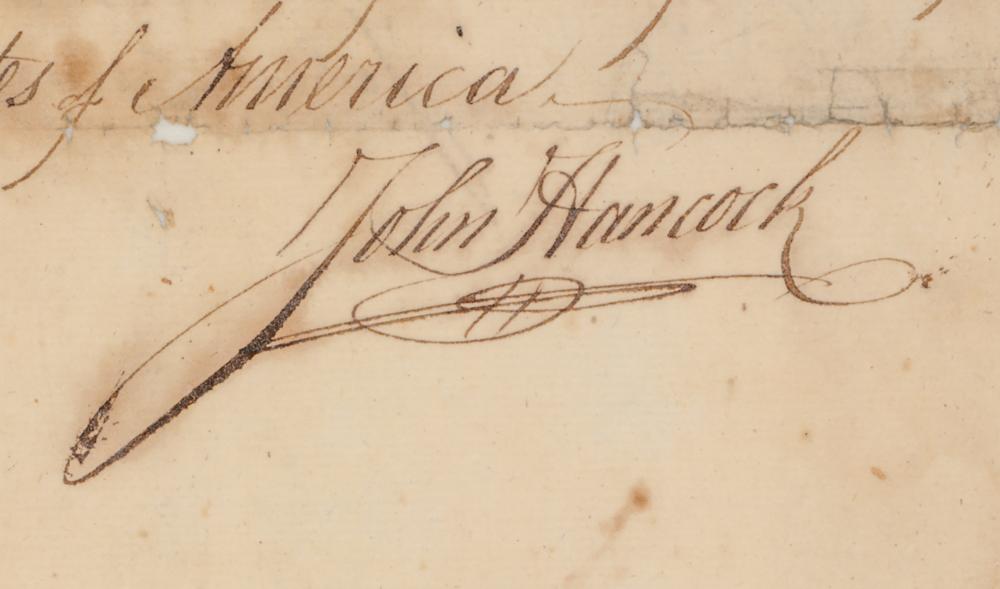 es of America
John Hancock